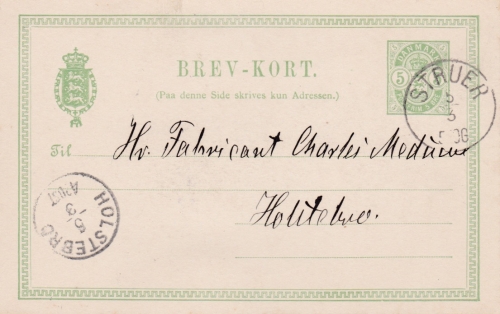 BREV-KORT.
(Paa denne Side skrives kun Adressen.)
DANMARK
5
5
STRUER
5
3
Til Hr. Fabricant Charles
Holstebro.
HOLSTEBRO
5
3